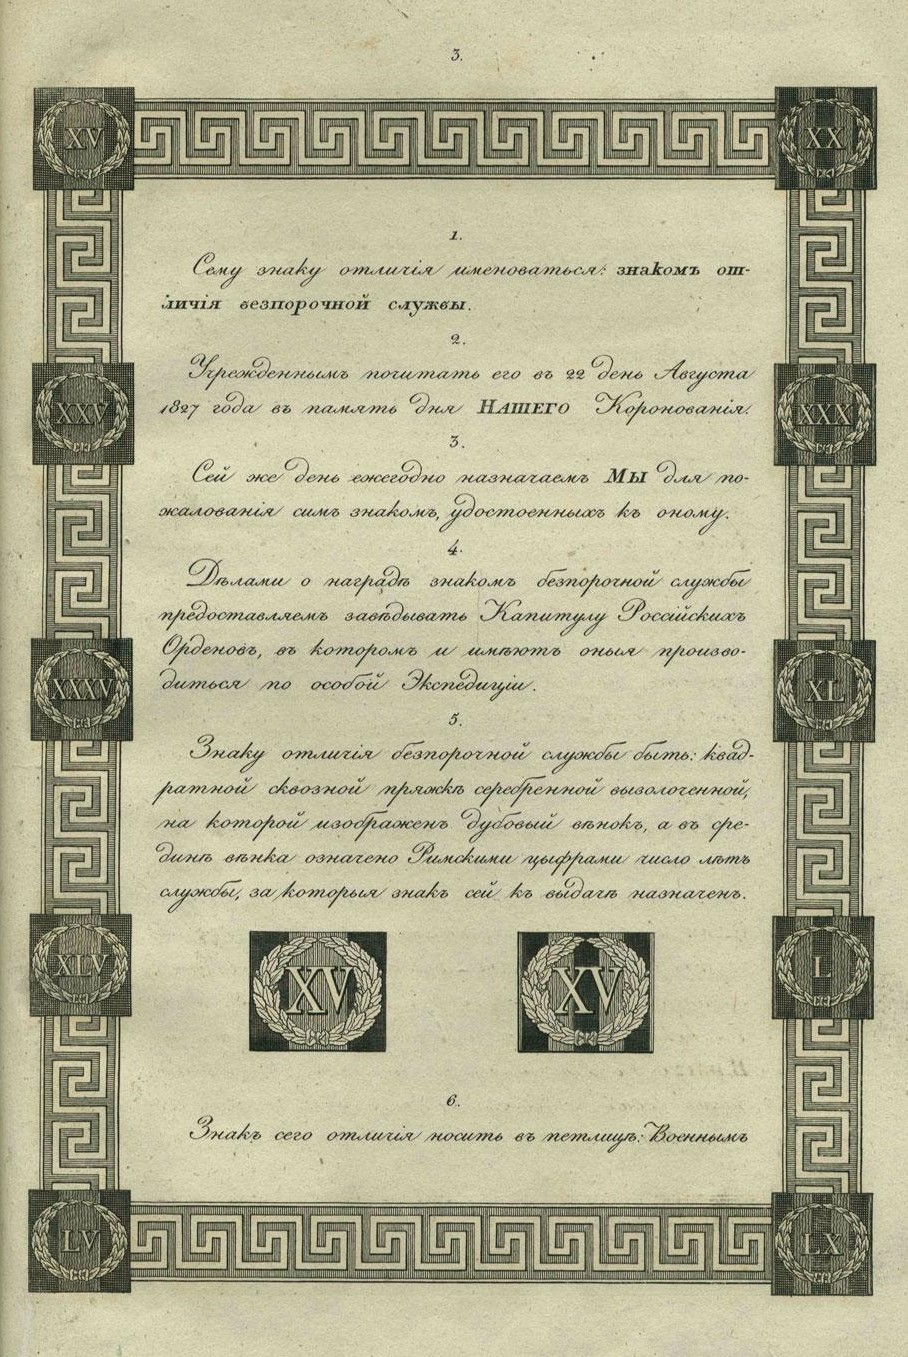 3.
XV XX
1.
Сему знаку отличія именоваться: знакомъ от-
личія безпорочной службы.
2.
Учрежденнымъ почитать его въ 22 день Августа
XXV XXX
1827 года въ память дня НАШЕГО Коронованія.
3.
Сей же день ежегодно назначаемъ МЫ для по-
жалованія симъ знакомъ, удостоенныхъ къ оному.
4.
Дѣлами о наградѣ знакомъ безпорочной службы
предоставляемъ завѣдывать Капитулу Россійскихъ
Орденовъ, въ которомъ и имѣютъ оныя произво-
XXXV XL
диться по особой Экспедиціи.
5.
Знаку отличія безпорочной службы быть: квад-
ратной сквозной пряжкѣ серебренной вызолоченной,
на которой изображенъ дубовый вѣнокъ, а въ сре-
динѣ вѣнка означено Римскими цыфрами число лѣтъ
службы, за которыя знакъ сей къ выдачѣ назначенъ.
XLV L
XV XV
6.
Знакъ сего отличія носить въ петлицѣ: Военнымъ
LV LX